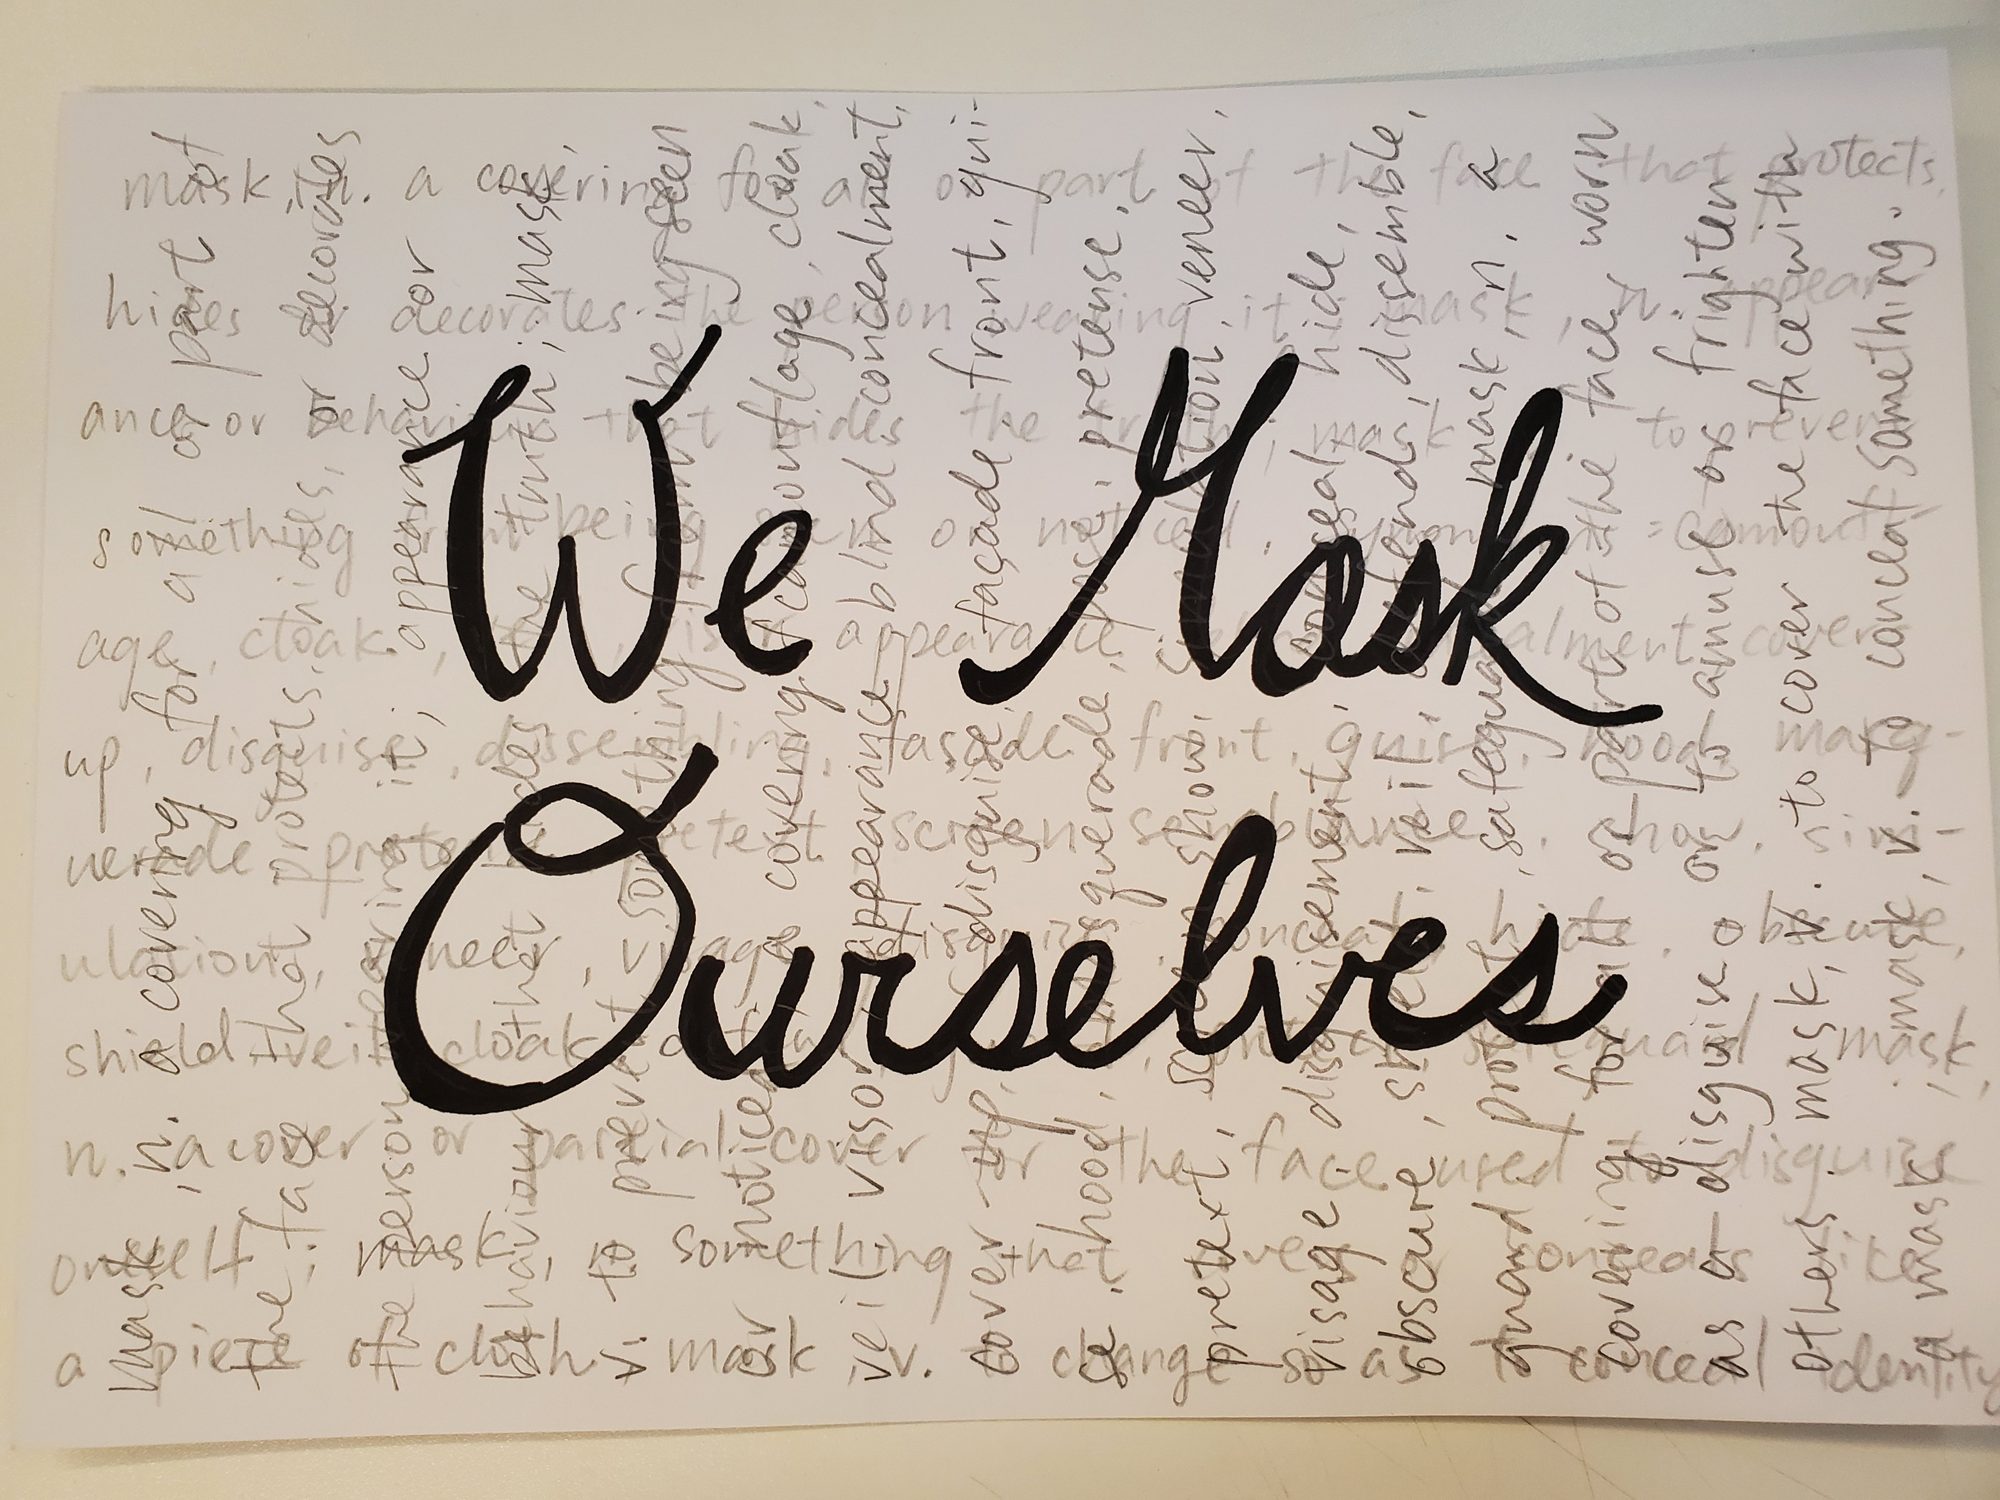 We Mask
Ourselves
mask, n. a covering for all or part of the face that protects,
hides or decorates the person wearing it; mask, n. appear-
ance or behaviour that hides the truth; mask, v. to prevent
something from being seen or noticed. synonyms: camoufl-
age, cloak, appearance, concealment, cover
up, disguise, dissembling, facade, front, guise, hood, masq-
uerade, pretense, pretext, screen, semblance, show, sim-
ulation, veneer, visage, disguise, conceal, hide, obscure,
shield, veil, cloak, safeguard, mask,
n. a cover or partial cover for the face used to disguise
oneself; mask, n. something that covers or conceals like
a piece of cloth; mask, v. to change so as to conceal identity
mask, n. a covering for all or part of
the face that protects, hides, or decorates
the person wearing it; appearance or
behaviour that hides the truth; mask,
v. to prevent something from being seen
or noticed. covering, camouflage, cloak,
veil, visor, appearance, blind, concealment,
cover up, disguise, façade, front, gui-
se, hood, masquerade, pose, pretense,
pretext, screen, show, simulation, veneer,
visage, disguisement, conceal, hide,
obscure, shield, veil, defend, dissemble,
guard, protect, safeguard, mask, n. a
covering for all or part of the face, worn
as a disguise or to amuse or frighten
others. mask, v. to cover the face with
a mask; mask, v. to conceal something.